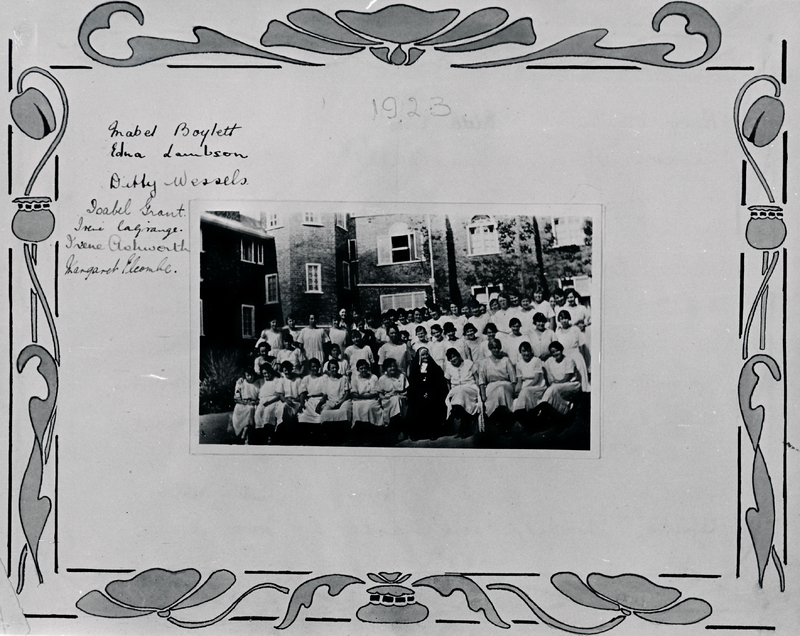 1923
Mabel Boylett
Edna Lambson
Ditty Wessels
Isabel Grant.
Irene Lagrange.
Irene Ashworth
Margaret Elcombe.